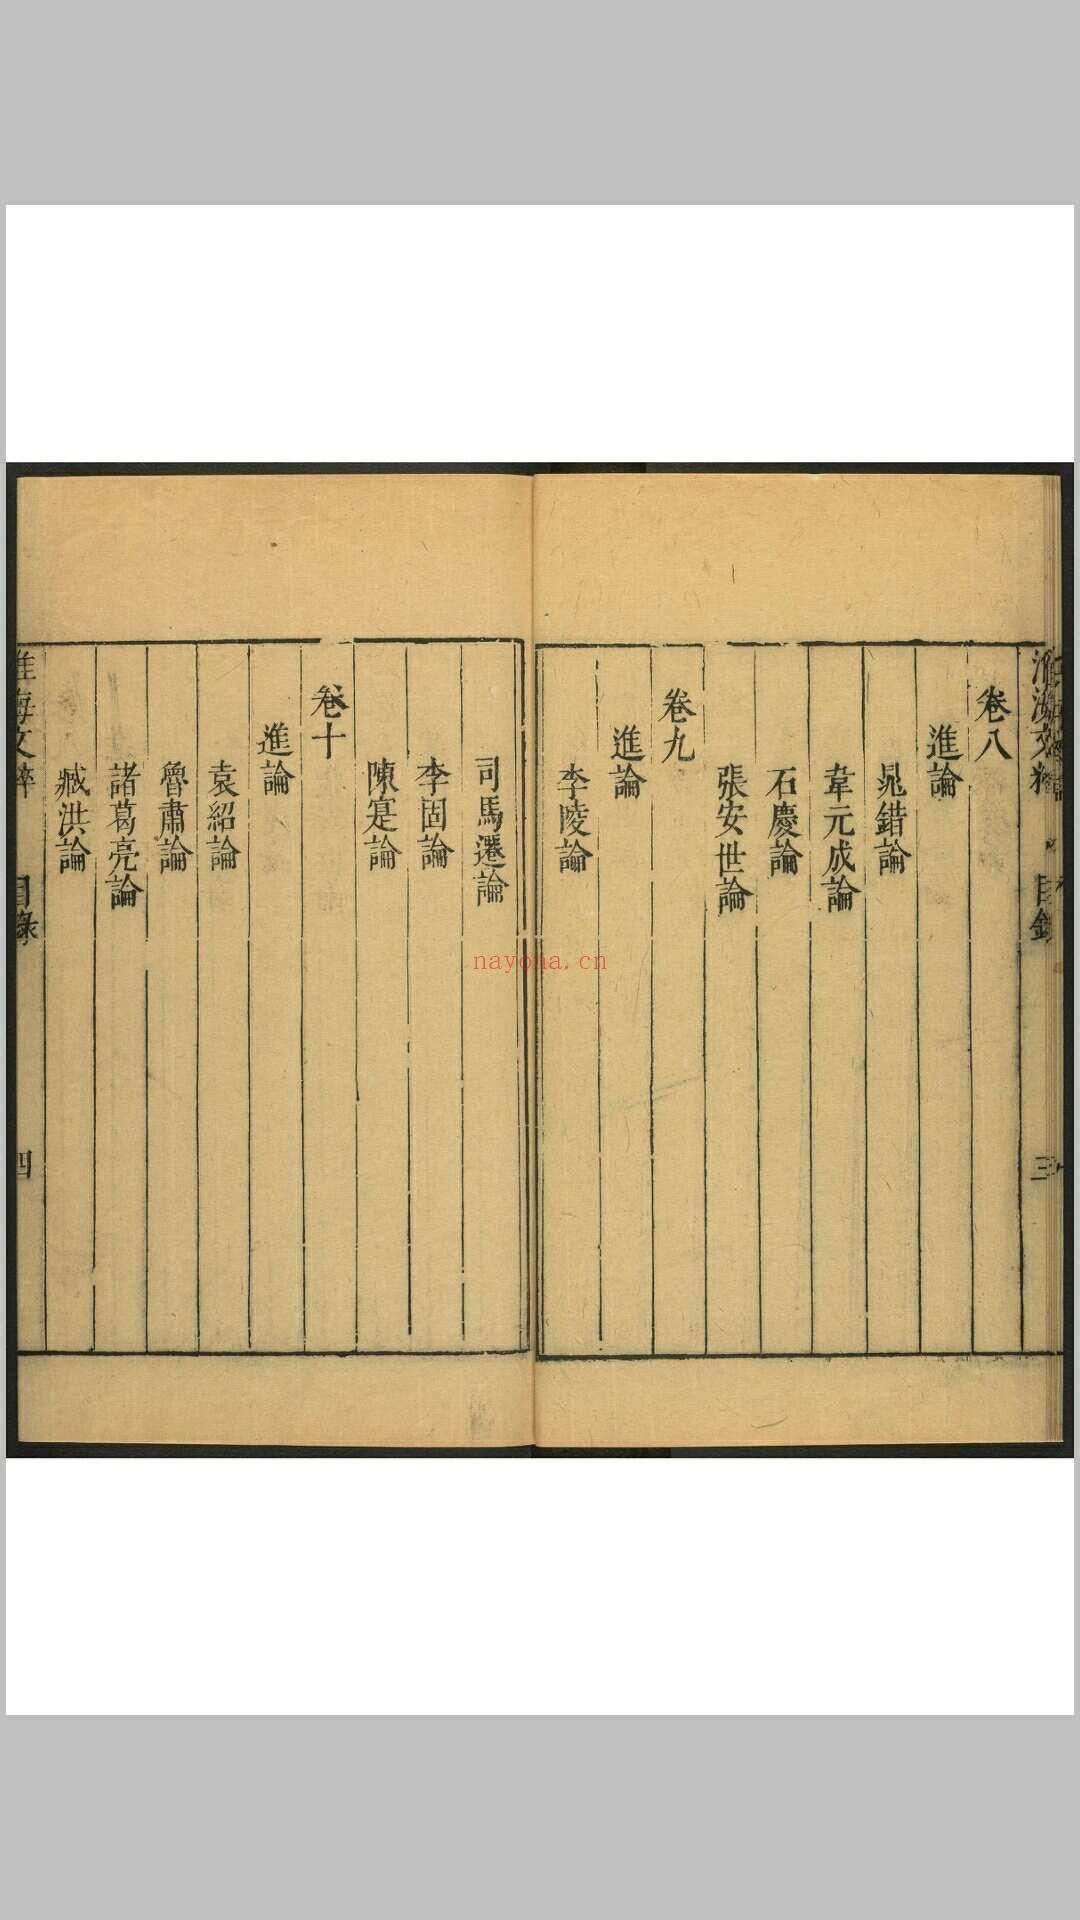 淮海文粹 目錄 三
卷八
進論
晁錯論
韋元成論
石慶論
張安世論
卷九
進論
李陵論
司馬遷論
李固論
陳寔論
卷十
進論
袁紹論
魯肅論
諸葛亮論
臧洪論
淮海文粹 目錄 四
nayona.cn